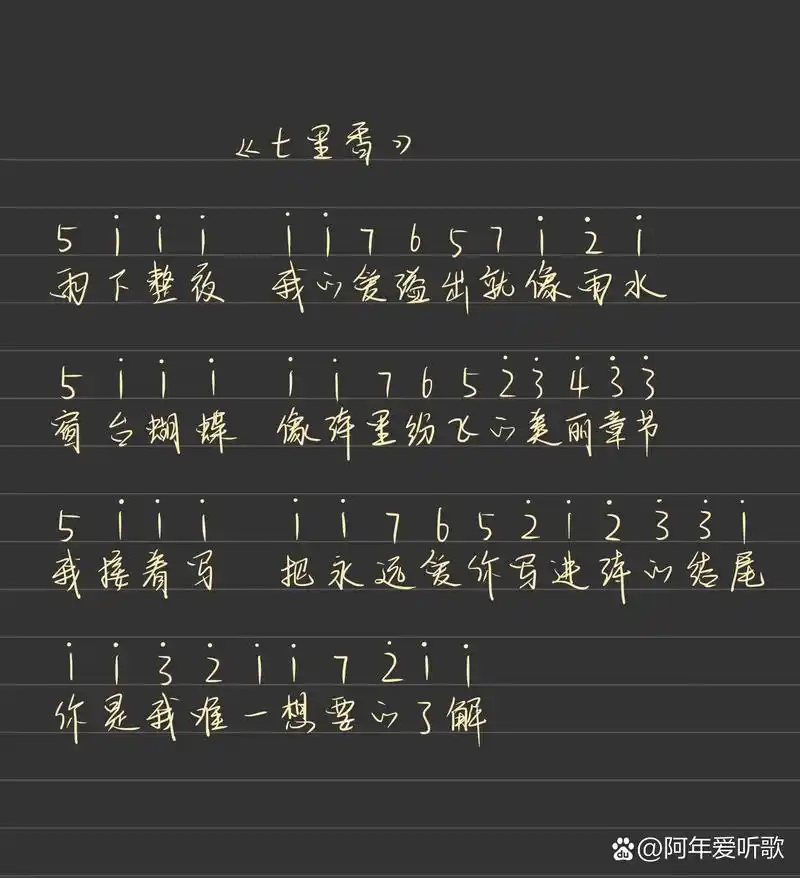 《七里香》
5 1̇ 1̇ 1̇ 1̇ 1̇ 7 6 5 7 1̇ 2̇ 1̇
雨下整夜 我的爱溢出就像雨水
5 1̇ 1̇ 1̇ 1̇ 1̇ 7 6 5 2̇ 3̇ 4̇ 3̇ 3̇
窗台蝴蝶 像诗里纷飞的美丽章节
5 1̇ 1̇ 1̇ 1̇ 1̇ 7 6 5 2̇ 1̇ 2̇ 3̇ 3̇ 1̇
我接着写 把永远爱你写进诗的结尾
1̇ 1̇ 3̇ 2̇ 1̇ 1̇ 7 2̇ 1̇ 1̇
你是我唯一想要的了解
du @阿年爱听歌